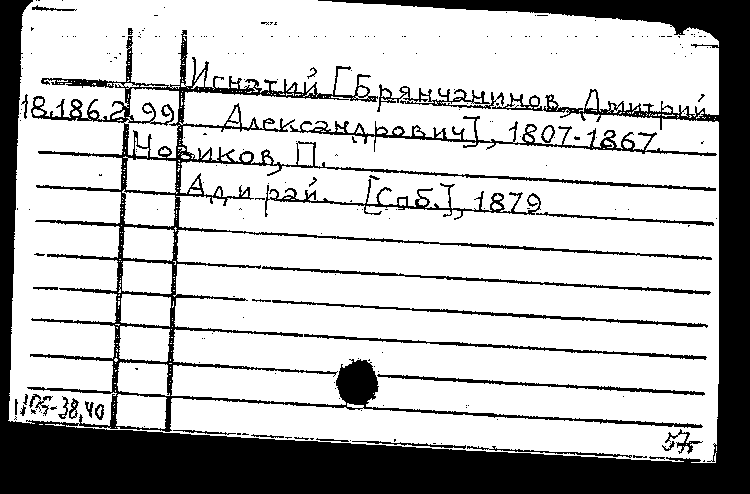 Игнатий [Брянчанинов, Дмитрий
18.186.2.99 Александрович], 1807-1867.
Новиков, П.
Ад и рай. [Спб.], 1879.
57г